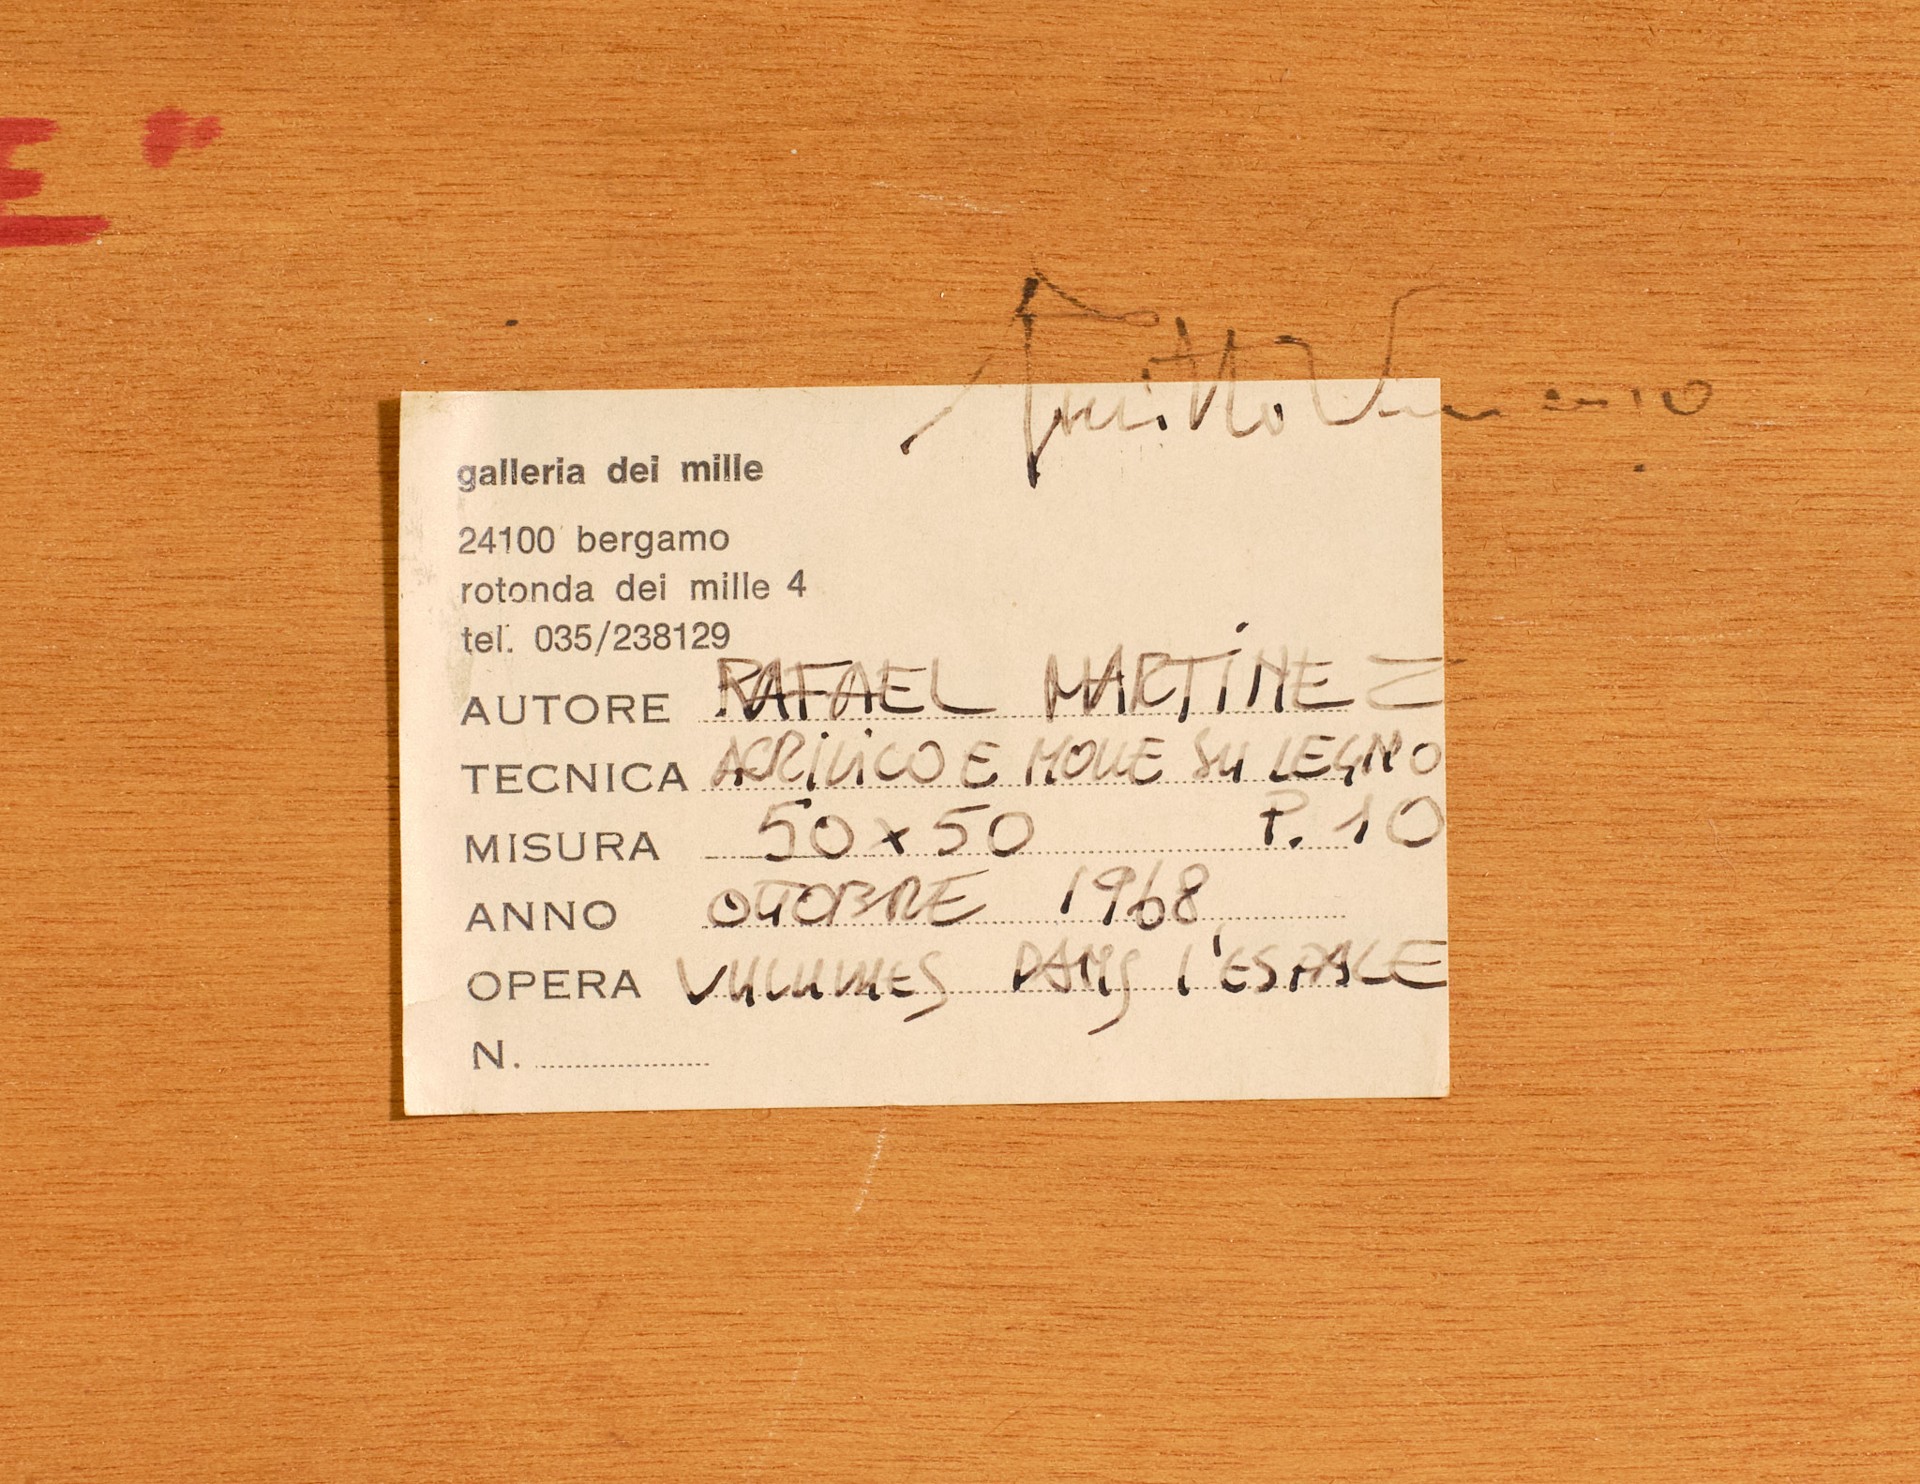 E"
galleria dei mille
24100 bergamo
rotonda dei mille 4
tel. 035/238129
AUTORE RAFAEL MARTINEZ
TECNICA ACRILICO E MOLLE SU LEGNO
MISURA 50 x 50 P. 10
ANNO OTTOBRE 1968
OPERA VULUMES DANS L'ESPACE
N.